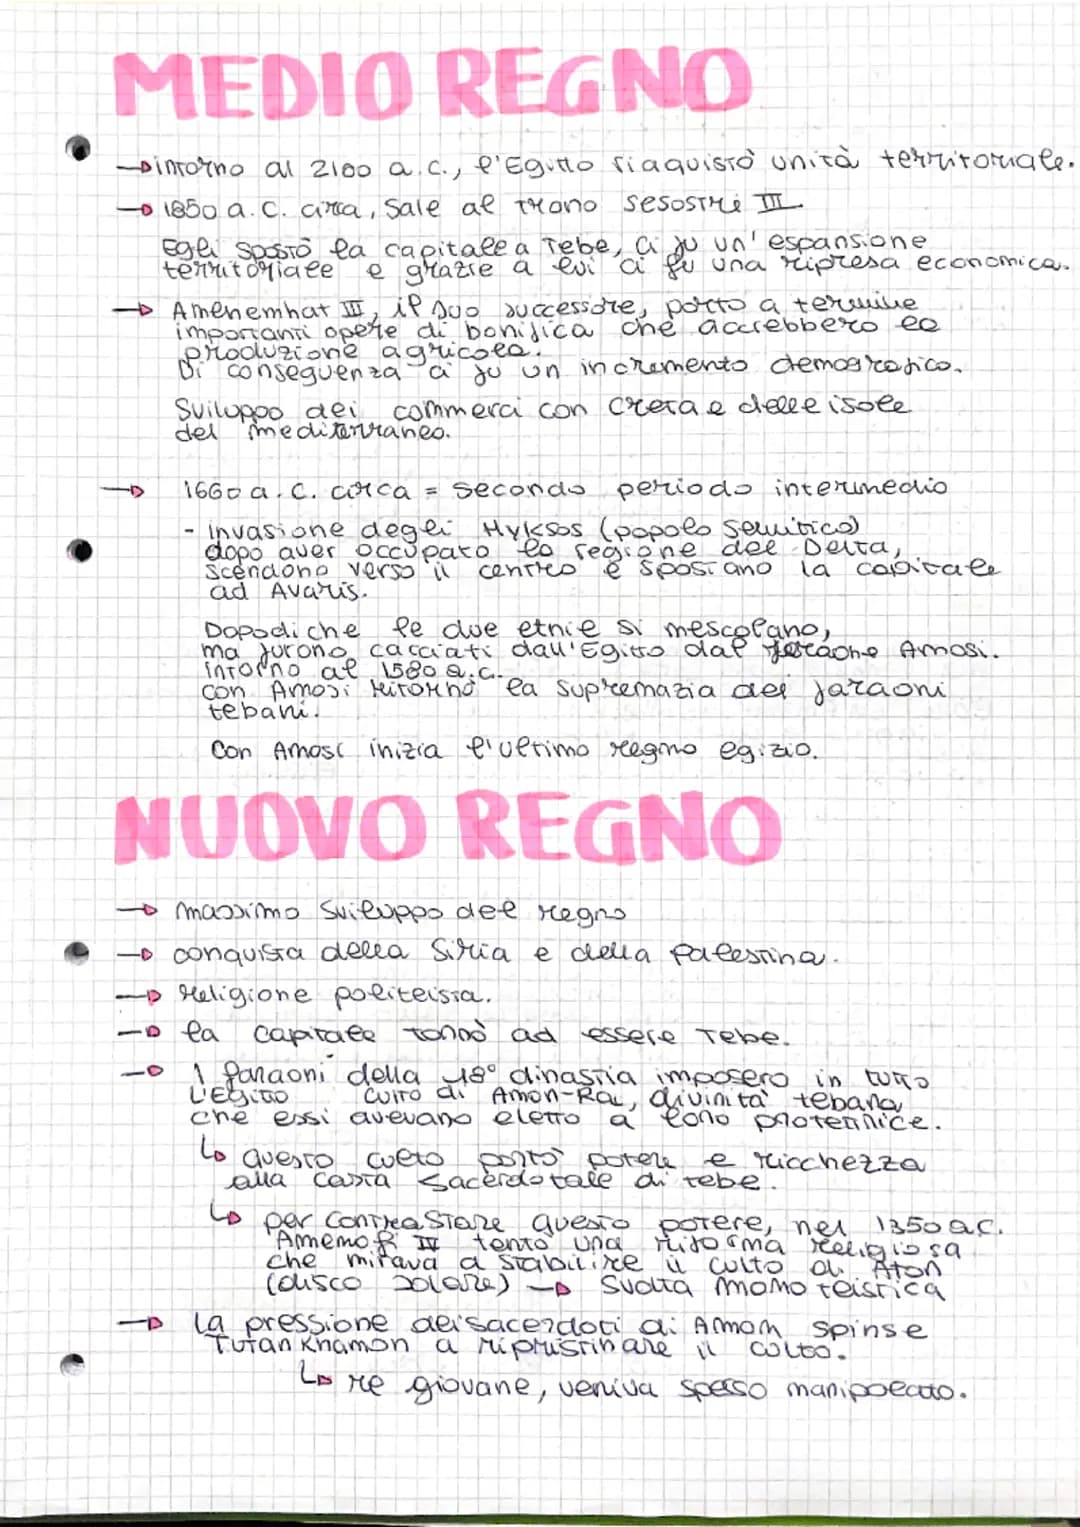 MEDIO REGNO
intorno al 2100 a.C., l'Egitto riaquistò unità territoriale.
1850 a.C. circa, sale al trono Sesostri III
Egli spostò la capitale a Tebe, ci fu un'espansione
territoriale e grazie a lui ci fu una ripresa economica.
Amenemhat III, il suo successore, portò a termine
importanti opere di bonifica che accrebbero la
produzione agricola.
Di conseguenza ci fu un incremento demografico.
Sviluppo dei commerci con Creta e delle isole
del mediterraneo.
1660 a.C. circa = secondo periodo intermedio
- Invasione degli Hyksos (popolo semitico)
dopo aver occupato la regione del Delta,
scendono verso il centro e spostano la capitale
ad Avaris.
Dopodiche le due etnie si mescolano,
ma furono cacciati dall'Egitto dal faraone Amosi.
intorno al 1580 a.C.
con Amosi ritornò la supremazia dei faraoni
tebani.
Con Amosi inizia l'ultimo regno egizio.
NUOVO REGNO
massimo sviluppo del regno
conquista della Siria e della Palestina.
religione politeista.
la capitale tornò ad essere Tebe.
I faraoni della 18° dinastia imposero in tutto
L'Egitto culto di Amon-Ra, divinità tebana
che essi avevano eletto a loro protettrice.
questo culto portò potere e ricchezza
alla casta sacerdotale di tebe.
per contrastare questo potere, nel 1350 a.C.
Amenofi IV tentò una riforma religiosa
che mirava a stabilire il culto di Aton
(disco solare) → Svolta monoteistica
La pressione dei sacerdoti di Amon spinse
Tutankhamon a ripristinare il culto.
re giovane, veniva spesso manipolato.